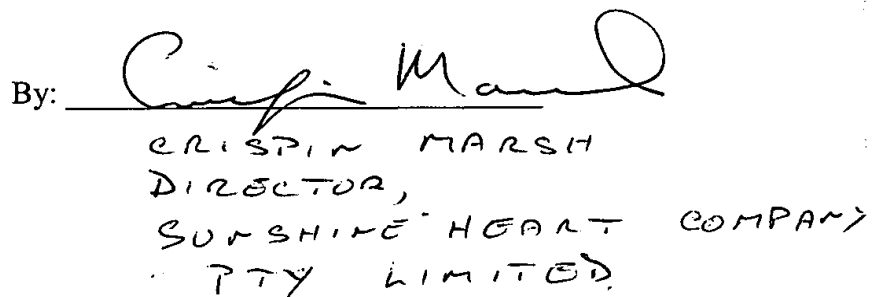 By: Crispin Marsh
CRISPIN MARSH
DIRECTOR,
SUNSHINE HEART COMPANY
PTY LIMITED.